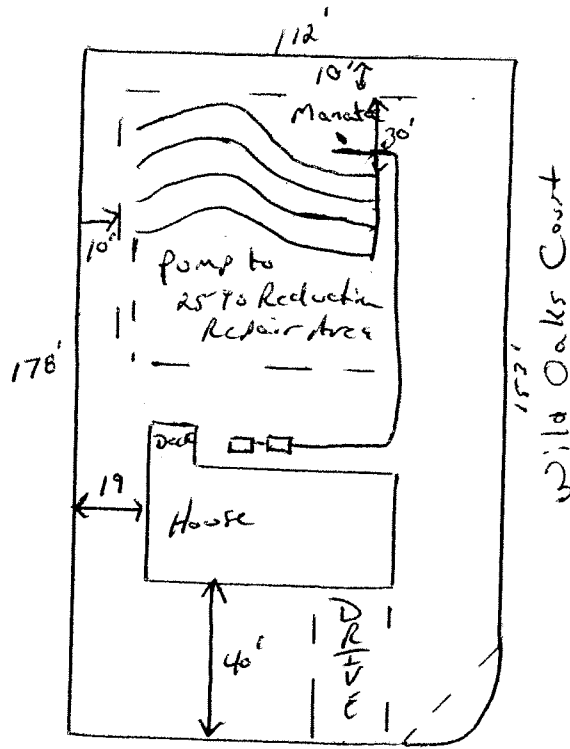 112'
10'
30'
10'
Pump to
25% Reduction
Repair Area
178'
153'
Wild Oaks Court
Deck
19
House
40'
DRIVE